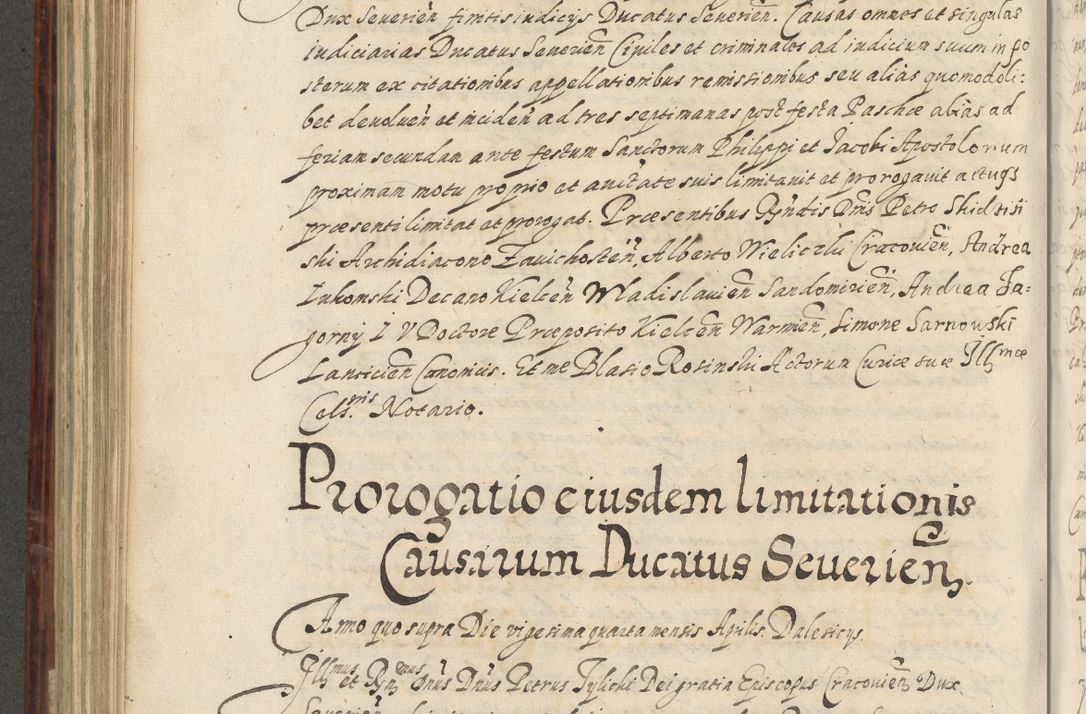 Dux Seuerien̄ finitis iudicijs Ducatus Seuerien̄. Causas omnes et singulas
iudiciarias Ducatus Seuerien̄ Ciuiles et criminales ad iudicium suum in po
sterum ex citationibus appellationibus remissionibus seu alias quomodoli:
bet deuoluen̄ et inciden̄ ad tres septimanas post festa Paschæ alias ad
feriam secundan ante festum Sanctorum Philippi et Jacobi Apostolorum
proximam motu proprio et auctate suis limitauit et prorogauit actuqs
præsenti limitat et prorogat. Præsentibus Rṇdis Dn̄is Petro Skidzisi
ski Archidiacono Zauichosten̄, Alberto Wieliczki Cracouien̄, Andrea
Lukomski Decano Kielcen̄ Wladislauien̄ Sandomirien̄, Andrea Ja-
gorny I V Doctore Præposito Kielcen̄ Warmien̄, Simone Sarnowski
Lancicien̄ Canonicis. Et me Blasio Rosinski Actorum Curiæ suæ Illmæ
Cels.nis Notario.
Prorogatio eiusdem limitationis
Causarum Ducatus Seuerien̄.
Anno quo supra Die vigesima quarta mensis Aprilis. Dalesicys.
Illmus et Rṇdmus Dn̄us Dn̄us Petrus Tylicki Dei gratia Episcopus Cracouien̄ Dux